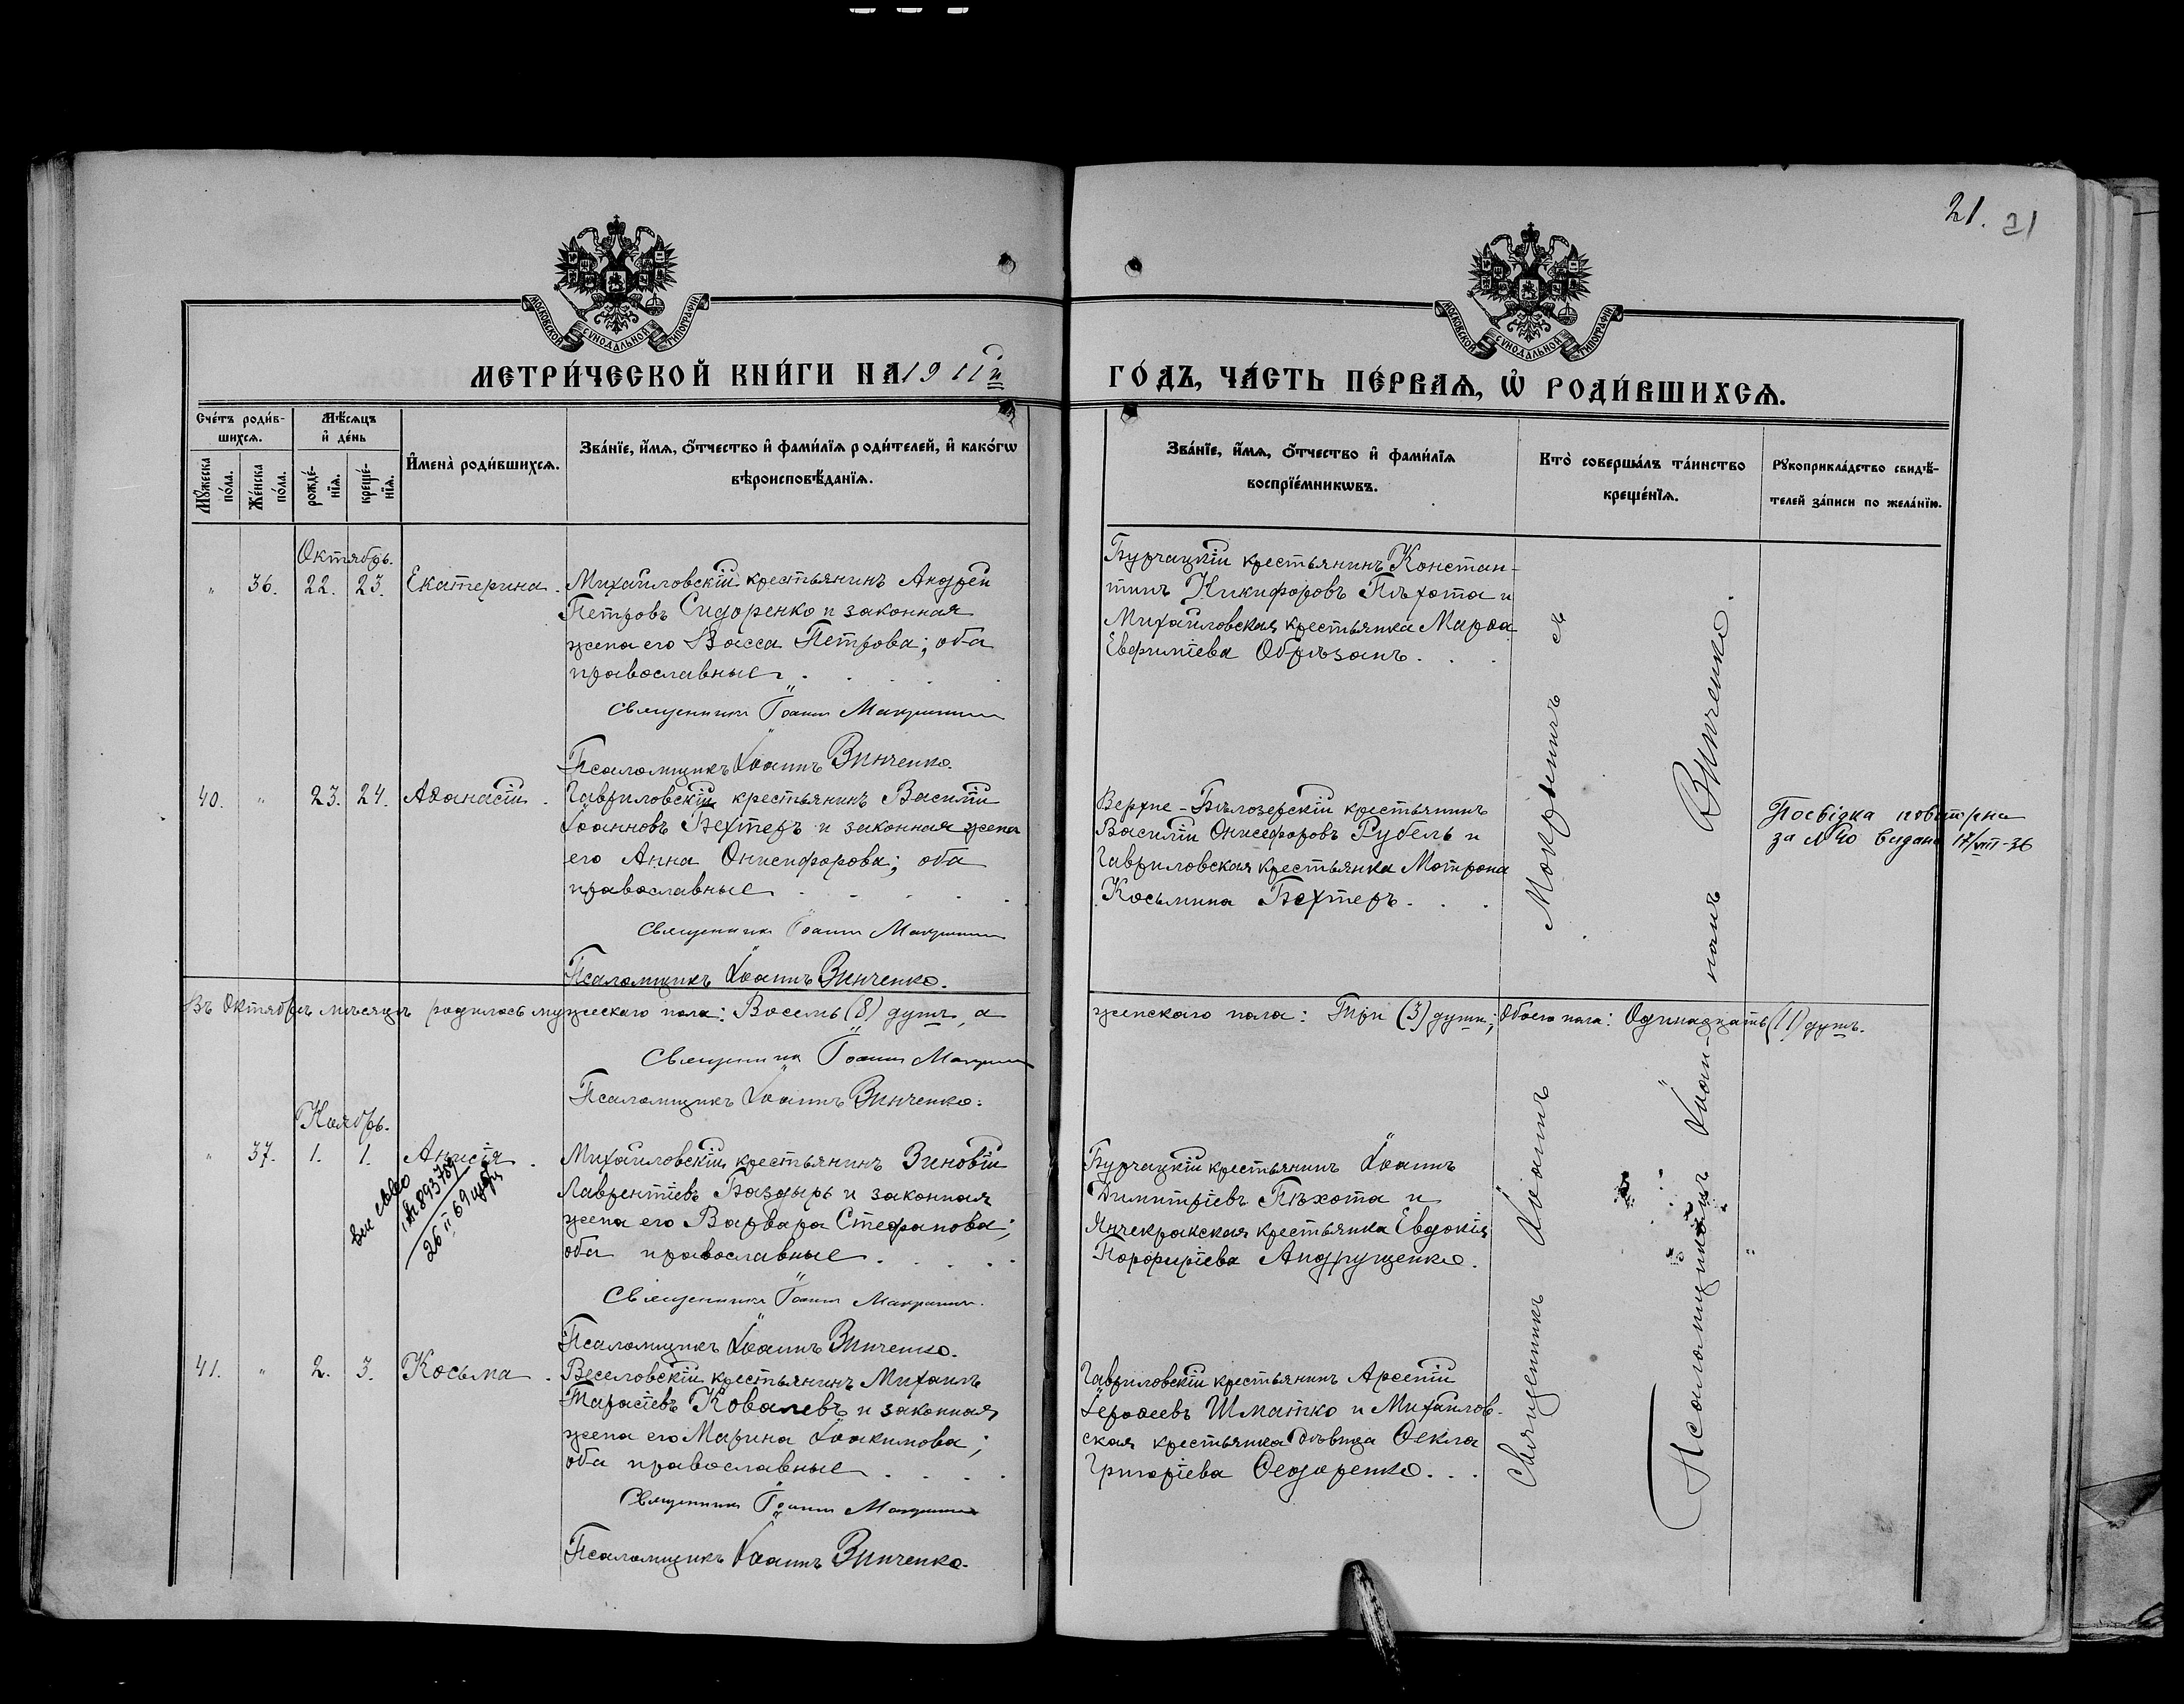 21. 21
МОСКОВСКОЙ СѴНОДАЛЬНОЙ ТИПОГРАФІИ
МОСКОВСКОЙ СѴНОДАЛЬНОЙ ТИПОГРАФІИ
МЕТРИ́ЧЕСКОЙ КНИ́ГИ НА 1911й
ГО́ДЪ, ЧА́СТЬ ПЕ́РВАѦ, Ѽ РОДИ́ВШИХСѦ.
Сче́тъ роди́в-
шихсѧ.
Мѣ́сѧцъ
и҆ де́нь
Мꙋ́жеска
по́ла.
Же́нска
по́ла.
рожде́-
нїѧ.
креще́-
нїѧ.
И҆мена̀ роди́вшихсѧ.
Зва́нїе, и҆́мѧ, о҆́тчество и҆ фами́лїѧ роди́телей, и҆ како́гѡ
вѣроисповѣ́данїѧ.
Зва́нїе, и҆́мѧ, о҆́тчество и҆ фами́лїѧ
воспрїе́мникѡвъ.
Кто̀ соверша́лъ та́инство
креще́нїѧ.
Рꙋкоприкла́дство свидѣ́-
телей за́писи по жела́нїю.
Октябрь.
" 36. 22. 23. Екатерина.
Михайловскій крестьянинъ Андрей
Петровъ Сидоренко и законная
жена его Васса Петрова; оба
православные.
Священникъ Іоаннъ Мокрынинъ
Псаломщикъ Іоаннъ Винченко.
Бурчацкій крестьянинъ Констан-
тинъ Никифоровъ Пѣхота и
Михайловская крестьянка Марѳа
Евфиміева Обрѣзанъ.
40. " 23. 24. Аѳанасій.
Гавриловскій крестьянинъ Василій
Іоанновъ Бехтеръ и законная жена
его Анна Онисифорова; оба
православные
Священникъ Іоаннъ Мокрынинъ
Псаломщикъ Іоаннъ Винченко.
Верхне-Бѣлозерскій крестьянинъ
Василій Онисифоровъ Рубель и
Гавриловская крестьянка Мотрона
Косьмина Бехтеръ.
Посвідка повторна
за №40 видана 17/VIII-36
Въ Октябрѣ мѣсяцѣ родилось мужескаго пола: Восемь (8) душъ, а
женскаго пола: Три (3) души; Обоего пола: Одинадцать (11) душъ.
Священникъ Іоаннъ Мокрынинъ
Псаломщикъ Іоаннъ Винченко.
Ноябрь.
" 37. 1. 1. Анисія.
Михайловскій крестьянинъ Зиновій
Лаврентіевъ Баздырь и законная
жена его Варвара Стефанова;
оба православные.
Священникъ Іоаннъ Мокрынинъ.
Псаломщикъ Іоаннъ Винченко.
Бурчацкій крестьянинъ Іоаннъ
Димитріевъ Пѣхота и
Янчекракская крестьянка Евдокія
Порфиріева Андрущенко.
41. " 2. 3. Косьма.
Веселовскій крестьянинъ Михаилъ
Тарасіевъ Ковалевъ и законная
жена его Марина Іоакимова;
оба православные.
Священникъ Іоаннъ Мокрынинъ
Псаломщикъ Іоаннъ Винченко.
Гавриловскій крестьянинъ Арсеній
Іероѳеевъ Шматко и Михайлов-
ская крестьянка дѣвица Ѳекла
Григоріева Ѳедоренко.
Священникъ Іоаннъ Мокрынинъ съ
Псаломщикомъ Іоан-
номъ Винченко.